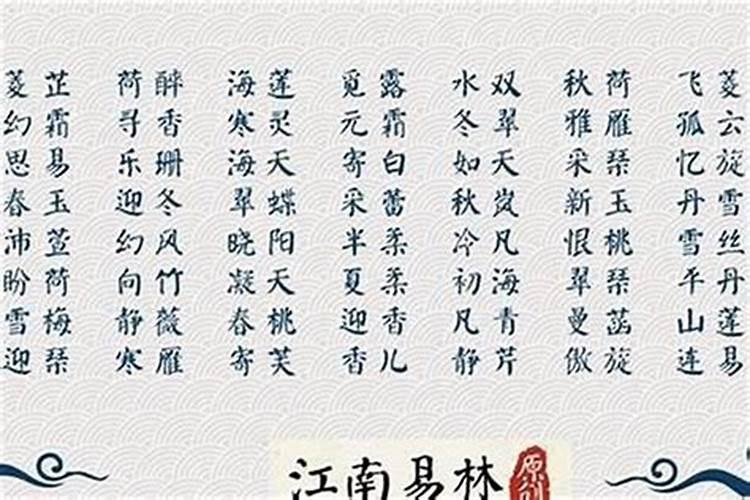 菱芷 荷醉 海莲 觅露 水双 秋荷 飞菱
幻霜 寻香 寒灵 元霜 冬翠 雅雁 孤云
思易 乐珊 海天 寄白 如天 采琴 忆旋
春玉 迎冬 翠蝶 采蕾 秋岚 新玉 丹雪
沛萱 幻风 晓阳 半柔 冷凡 恨桃 雪丝
盼荷 向竹 凝天 夏柔 初海 翠琴 平丹
雪梅 静薇 春桃 迎香 凡青 曼菡 山莲
迎琴 寒雁 寄芙 香儿 静芹 傲旋 连易
江南易林